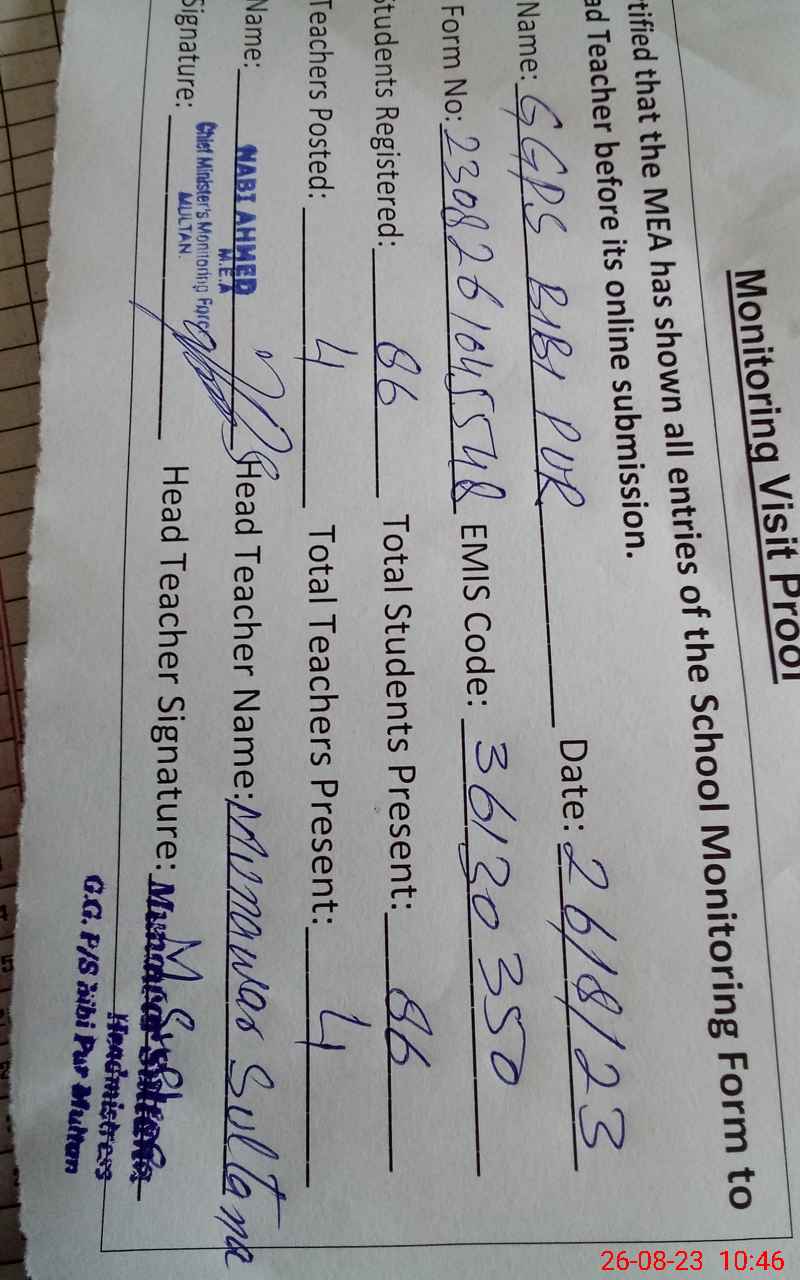 Monitoring Visit Proof
tified that the MEA has shown all entries of the School Monitoring Form to
ad Teacher before its online submission.
Name: GGPS BIBI PUR Date: 26/8/23
Form No: 2308261045548 EMIS Code: 36130350
Students Registered: 86 Total Students Present: 86
Teachers Posted: 4 Total Teachers Present: 4
Name: NABI AHMED Head Teacher Name: Munawar Sultana
M.E.A
Chief Minister's Monitoring Force
MULTAN.
Signature: Head Teacher Signature: Munawar Sultana
Headmistress
G.G. P/S Bibi Pur Multan
26-08-23 10:46